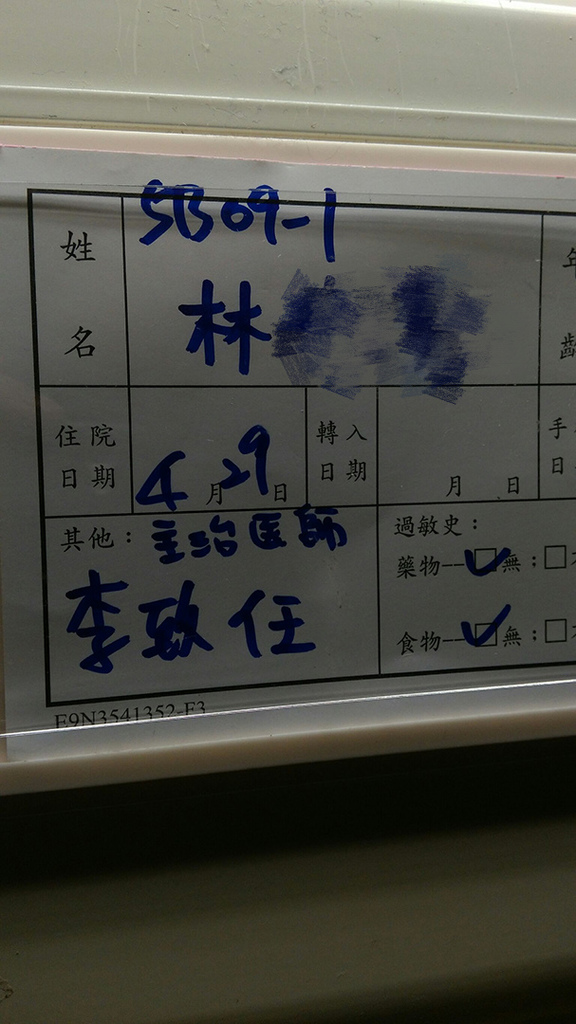 5B09-1
姓名 林
年齡
住院日期 4月29日
轉入日期 月 日
手
日
其他：主治医師
李致任
過敏史：
藥物--☑無；□
食物--☑無；□
F9N3541352-F3